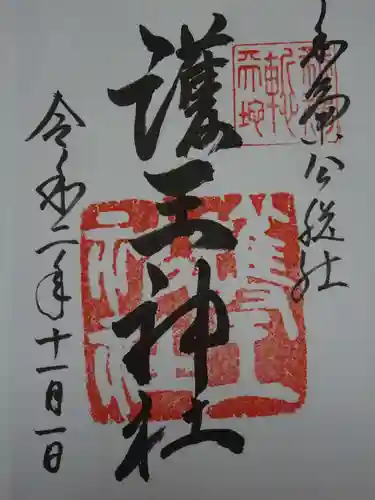 和氣公総社
護王神社
令和二年十一月一日
護王神社